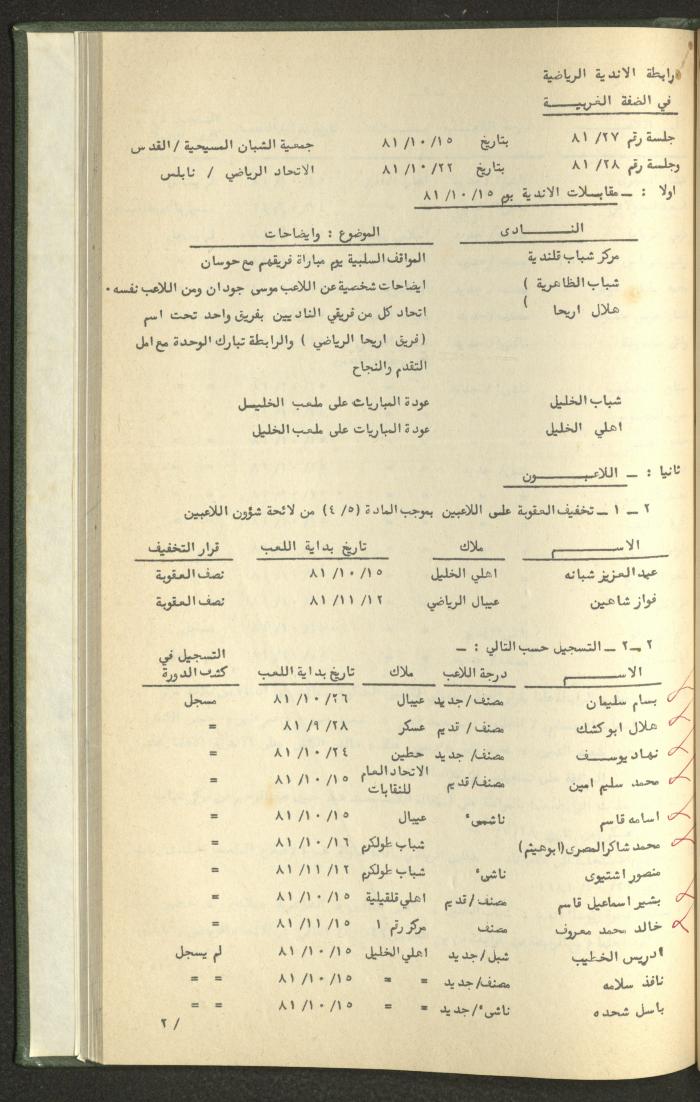 رابطة الاندية الرياضية
في الضفة الغربيـــــة
جلسة رقم ٨١/٢٧ بتاريخ ٨١/١٠/١٥ جمعية الشبان المسيحية / القدس
وجلسة رقم ٨١/٢٨ بتاريخ ٨١/١٠/٢٢ الاتحاد الرياضي / نابلس
اولا : ــ مقابسلات الاندية يوم ٨١/١٠/١٥
النــــادى الموضوع : وايضاحات
مركز شباب قلندية المواقف السلبية يوم مباراة فريقهم مع حوسان
شباب الظاهرية ) ايضاحات شخصية عن اللاعب موسى جودان ومن اللاعب نفسه ٠
هلال اريحا ) اتحاد كل من فريقي الناديين بفريق واحد تحت اسم
(فريق اريحا الرياضي ) والرابطة تبارك الوحدة مع امل
التقدم والنجاح
شباب الخليل عودة المباريات على ملعب الخليـل
اهلي الخليل عودة المباريات على ملعب الخليل
ثانيا : ــ اللاعبــــون
٢ ــ ١ ــ تخفيف العقوبة على اللاعبين بموجب المادة (٤/٥) من لائحة شؤون اللاعبين
الاســــــم ملاك تاريخ بداية اللعب قرار التخفيف
عبد العزيز شبانه اهلي الخليل ٨١/١٠/١٥ نصف العقوبة
فواز شاهين عيبال الرياضي ٨١/١١/١٢ نصف العقوبة
٢ــ٢ ــ التسجيل حسب التالي : ــ
الاســــــم درجة اللاعب ملاك تاريخ بداية اللعب التسجيل في كشف الدورة
بسام سليمان مصنف/جديد عيبال ٨١/١٠/٢٦ مسجل
هلال ابو كشك مصنف/قديم عسكر ٨١/٩/٢٨ =
نهاد يوســـف مصنف/جديد حطين ٨١/١٠/٢٤ =
محمد سليم امين مصنف/قديم الاتحاد العام للنقابات ٨١/١٠/١٥ =
اسامه قاسم ناشىء عيبال ٨١/١٠/١٥ =
محمد شاكر المصرى(ابوهيثم) شباب طولكرم ٨١/١٠/١٦ =
منصور اشتيوى ناشىء شباب طولكرم ٨١/١١/١٢ =
بشير اسماعيل قاسم مصنف/قديم اهلي قلقيلية ٨١/١٠/١٥ =
خالد محمد معروف مصنف مركز رقم ١ ٨١/١١/١٥ =
ادريس الخطيب شبل/جديد اهلي الخليل ٨١/١٠/١٥ لم يسجل
نافذ سلامه مصنف/جديد = = ٨١/١٠/١٥ = =
باسل شحده ناشىء/جديد = = ٨١/١٠/١٥ = =
٢ /